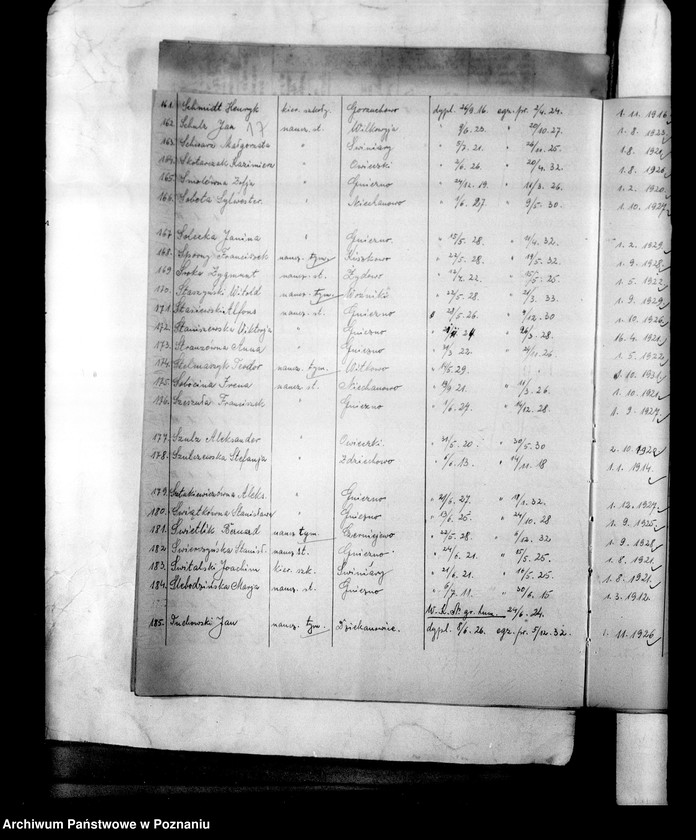 161. Schmidt Henryk kier. szkoły. Gorzuchowo dypl. 26/3 16. egz. pr. 2/4. 24. 1. 11. 1916
162. Schulz Jan 17 naucz. st. Wilkowyja " 9/6. 23. " 20/10. 27. 1. 8. 1923
163. Schwarz Małgorzata " Świniary " 5/7. 21. " 24/11. 25. 1. 8. 1921
164. Kazimierz " Owieczki " 2/6. 26. " 20/4. 32. 1. 8. 1926
165. Zofja " Gniezno " 20/12. 19. " 11/3. 26. 1. 2. 1920
166. Sobota Sylwester " Niechanowo " 1/6. 27. " 9/5. 30. 1. 10. 1927
167. Solecka Janina " Gniezno. " 15/5. 28. " 11/4. 32. 1. 2. 1929
168. Franciszek naucz. tym. Kiszkowo " 24/5. 28. " 19/5. 32. 1. 9. 1928
169 Sroka Zygmunt naucz. st. Żydowo " 12/4. 22. " 15/5. 25. 1. 5. 1922
170. Staszyński Witold naucz. tym. Woźniki " 22/5. 28. " 21/3. 33. 1. 9. 1929
171. Stasiewski Alfons naucz. st. Gniezno " 28/5. 26. " 9/12. 30 1. 10. 1926
172. Staniszewska Wiktorja " Gniezno " 24 " 26/3. 28. 16. 4. 1921
173. Anna " Gniezno " 21/3 22. " 24/11. 26. 1. 5. 1922
174. Stelmaszyk Teodor naucz. tym. Witkowo " 14/5. 29. 1. 10. 1931
175. Irena naucz. st. Niechanowo " 19/9 21. " 11/3. 26. 1. 10. 1921
176. Franciszek " Gniezno " 1/6. 24. " 14/12. 28. 1. 9. 1924
177. Szulz Aleksander " Owieczki. " 31/5. 20. " 30/5. 30 2. 10. 1920
178. Szulczewska Stefanja " Zdziechowo " 6/6. 13. " 14/11. 18 1. 1. 1914
179. Aleks. " Gniezno " 21/6. 27. " 19/1. 32. 1. 12. 1927
180. Świątkówna Stanisława " Gniezno " 13/6. 25. " 24/10. 28 1. 9. 1925
181. Świetlik Bernard naucz. tym. Czerniejewo " 22/5. 28. " 6/12. 32 1. 9. 1928
182. Świerczyńska Stanisł. naucz. st. Gniezno " 24/6. 21. " 15/5. 25. 1. 8. 1921
183. Świtalski Joachim kier. szk. Świniary " 21/6. 21. " 10/5. 25. 1. 8. 1921
184. Marja naucz. st. Gniezno " 9/7. 11. " 30/6. 15 1. 3. 1912
W. K. N. gr. hum. 24/6. 24.
185. Tuchowski Jan naucz. tym. Dziekanowice. dypl. 8/6. 26. egz. pr. 5/12. 32. 1. 11. 1926
Archiwum Państwowe w Poznaniu